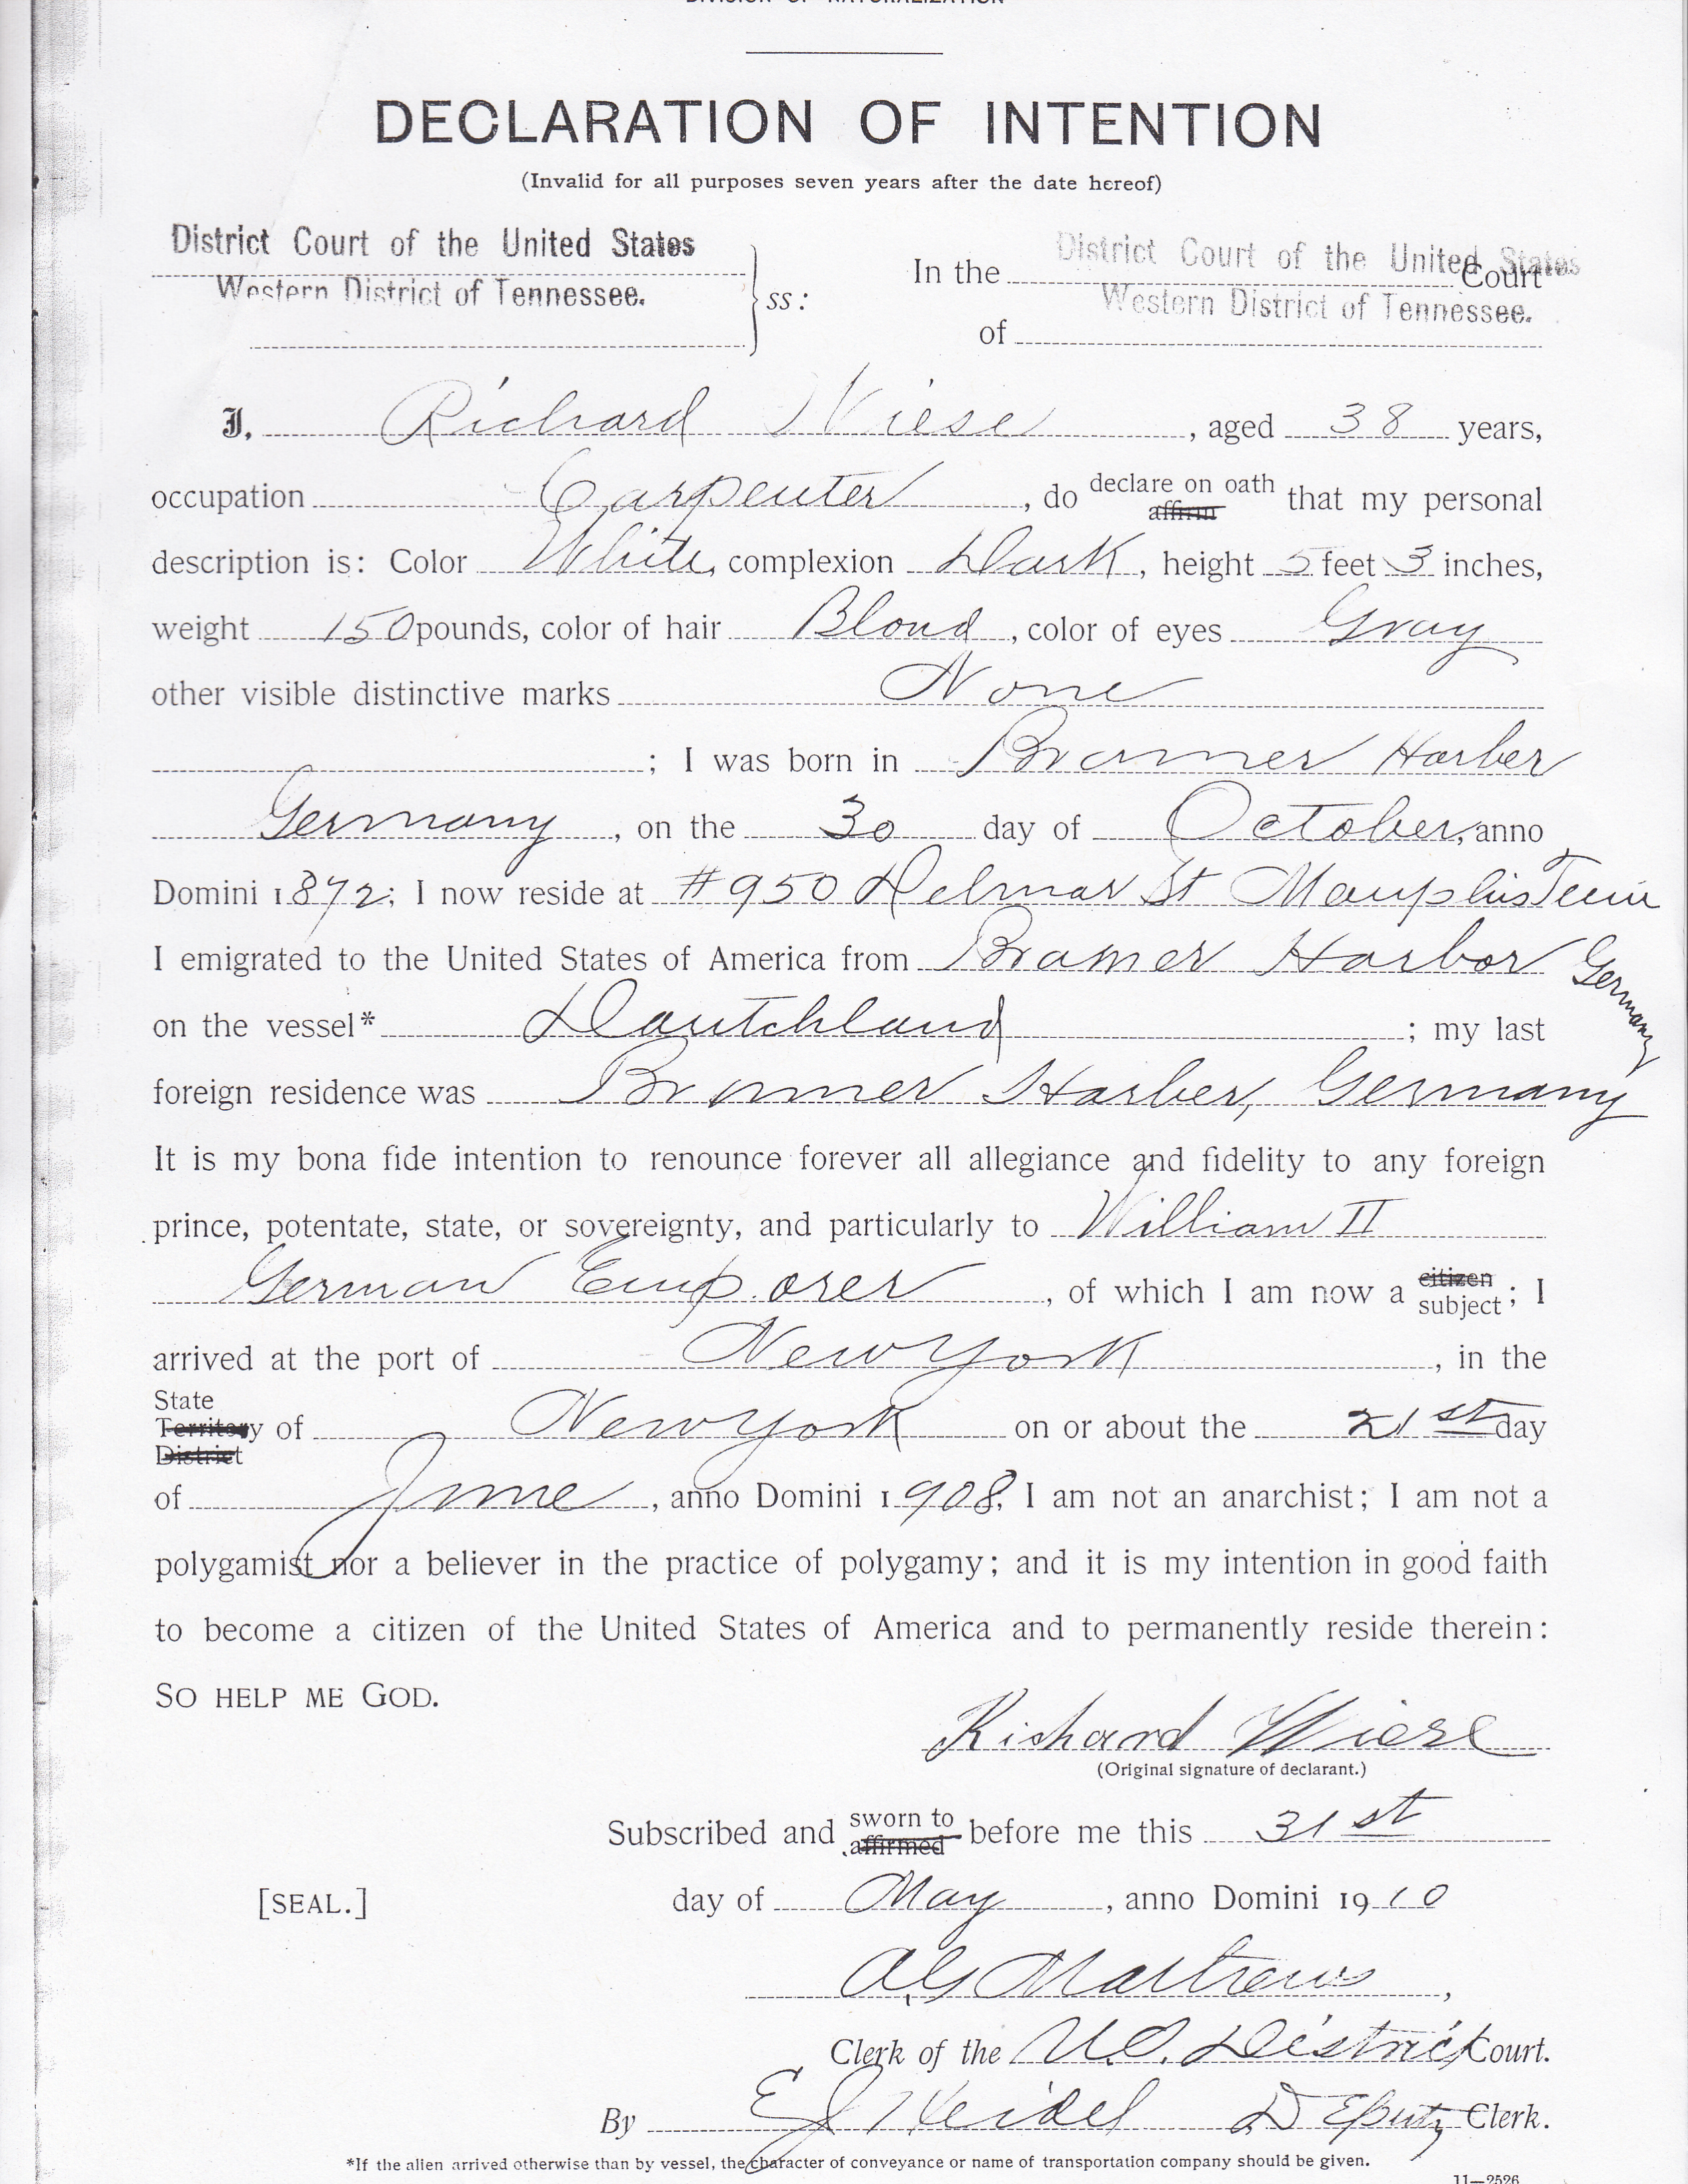 DIVISION OF NATURALIZATION
DECLARATION OF INTENTION
(Invalid for all purposes seven years after the date hereof)
District Court of the United States
Western District of Tennessee.
ss:
In the District Court of the United States Court
of Western District of Tennessee.
I, Richard Wiese, aged 38 years,
occupation Carpenter, do declare on oath affirm that my personal
description is: Color White, complexion Dark, height 5 feet 3 inches,
weight 150 pounds, color of hair Blond, color of eyes Gray
other visible distinctive marks None
; I was born in Bramer Harber
Germany, on the 30 day of October, anno
Domini 1872; I now reside at #950 Delmar St Memphis Tenn
I emigrated to the United States of America from Bramer Harbor Germany
on the vessel* Dautchland; my last
foreign residence was Bramer Harber, Germany
It is my bona fide intention to renounce forever all allegiance and fidelity to any foreign
prince, potentate, state, or sovereignty, and particularly to William II
German Emporer, of which I am now a citizen subject; I
arrived at the port of New York, in the
State Territory District of New York on or about the 21st day
of June, anno Domini 1908; I am not an anarchist; I am not a
polygamist nor a believer in the practice of polygamy; and it is my intention in good faith
to become a citizen of the United States of America and to permanently reside therein:
SO HELP ME GOD.
Richard Wiese
(Original signature of declarant.)
Subscribed and sworn to affirmed before me this 31st
[SEAL.] day of May, anno Domini 1910
A G Matthews,
Clerk of the U.S. District Court.
By E J Heidel Deputy Clerk.
*If the alien arrived otherwise than by vessel, the character of conveyance or name of transportation company should be given.
11—2526